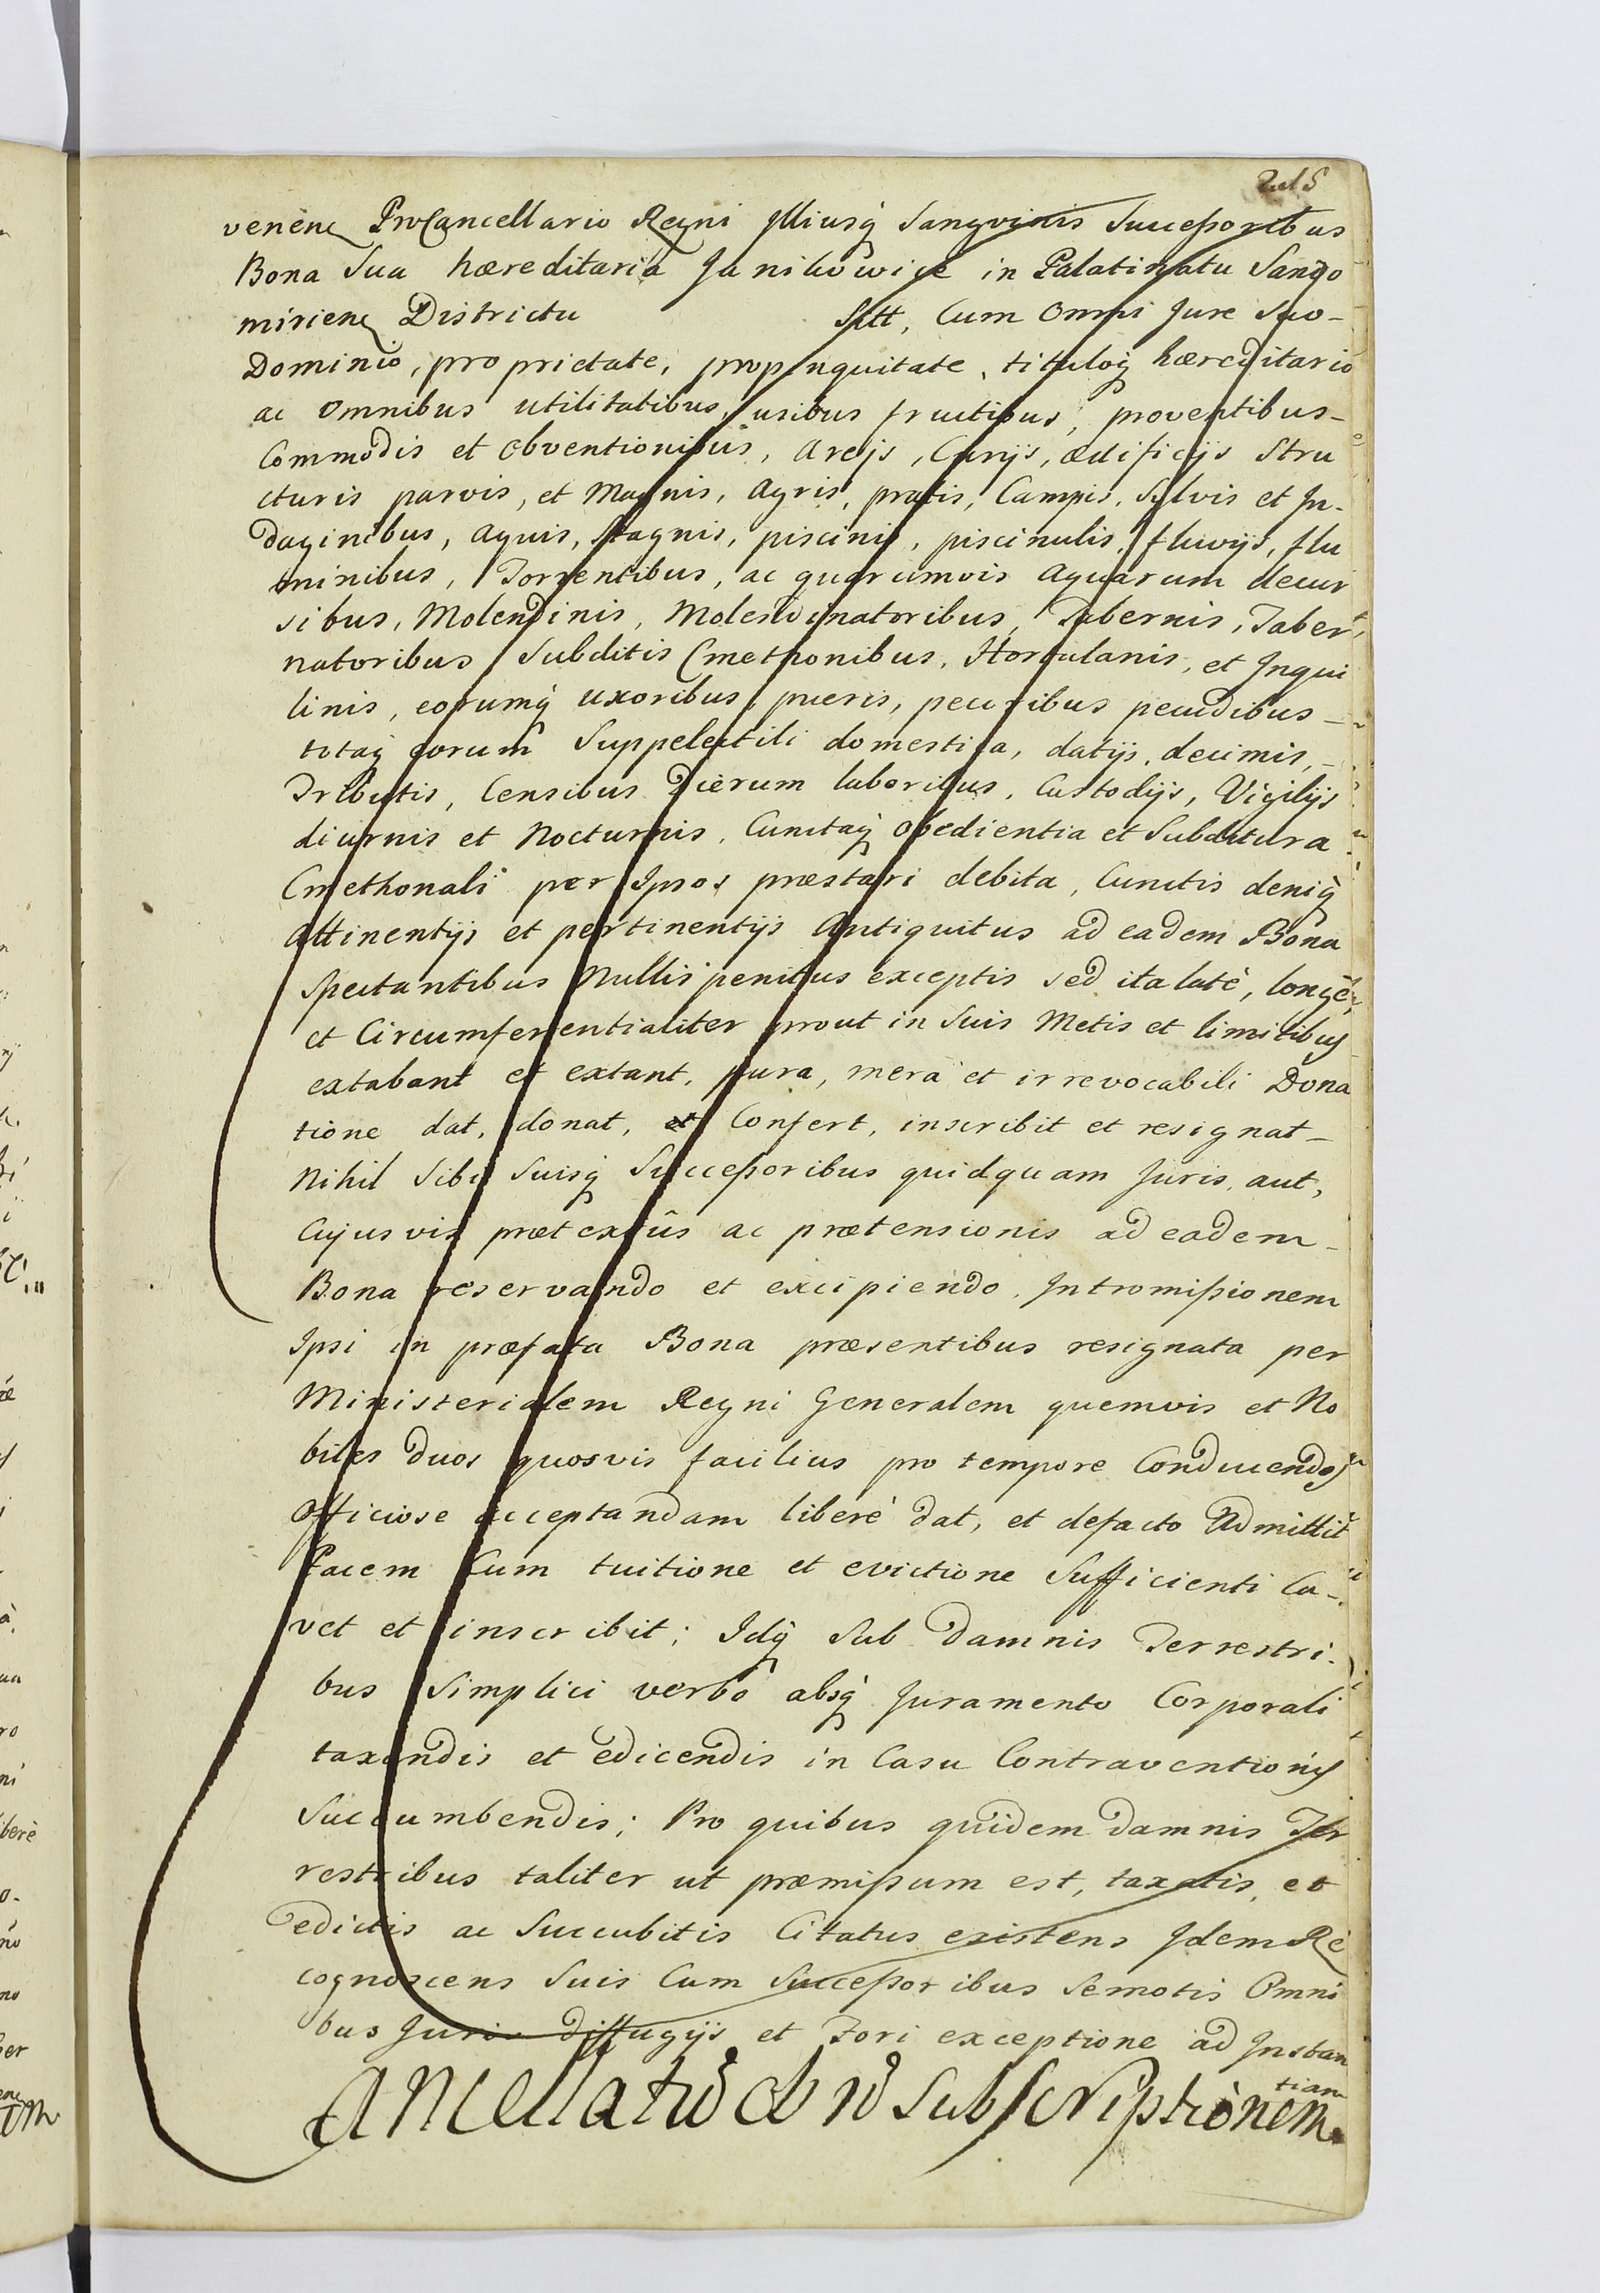 venienc ProCancellario Regni Illiusq̃ Sangvinis Successoribus
Bona Sua hæreditaria Janikowice in Palatinatu Sando
miriene Districtu Sitt, Cum Omni Jure Suo-
Dominio, proprietate, propinquitate, tituloq̃ hæreditario
ac omnibus utilitatibus, usibus fructibus, proventibus-
Commodis et obventionibus, Areijs, Curijs, ædificijs Stru
cturis parvis, et Magnis, Agris, pratis, Campis, Sylvis et In-
daginibus, aquis, Stagnis, piscinis, piscinulis, fluvijs, flu
minibus, Torrentibus, ac quarumvis Aquarum decur
sibus, Molendinis, Molendinatoribus, Tabernis, Taber
natoribus Subditis Cmethonibus, Hortulanis, et Inqui
linis, eorumq̃ uxoribus, pueris, pecoribus pecudibus-
totaq̃ eorum Suppelectili domestica, datijs, decimis,-
Tributis, Censibus Dierum laboribus, Custodijs, Vigilijs
diurnis et Nocturnis, Cunctaq̃ obedientia et Subditura
Cmethonali per Ipsos præstari debita, Cunctis deniq̃
Attinentijs et pertinentijs Antiquitus ad eadem Bona
Spectantibus Nullis penitus exceptis sed ita latè, longè,
et Circumferentialiter prout in Suis Metis et limitibus
extabant et extant, pura, mera et irrevocabili Dona
tione dat, donat, et Confert, inscribit et resignat-
Nihil Sibi Suisq̃ Successoribus quidquam Juris, aut,
Cujusvis prætextûs ac prætensionis ad eadem-
Bona reservando et excipiendo. Intromissionem
Ipsi in præfata Bona præsentibus resignata per
Ministerialem Regni Generalem quemvis et No
biles duos quosvis facilius pro tempore Conducendos
Officiose acceptandam liberè dat, et defacto Admittit
Pacem Cum tuitione et evictione Sufficienti Ca-
vet et inscribit; Idq̃ Sub Damnis Terrestri-
bus Simplici verbo absq̃ Juramento Corporali
taxandis et edicendis in Casu Contraventionis
Succumbendis; Pro quibus quidem Damnis Ter
restribus taliter ut præmissum est, taxatis, et
edictis ac Succubitis Citatus existens Idem Re
cognoscens Suis Cum Successoribus Semotis Omni
bus Juris diffugijs et Fori exceptione ad Instan
tiam
Cancellatũ ob nõ Subscriptionem